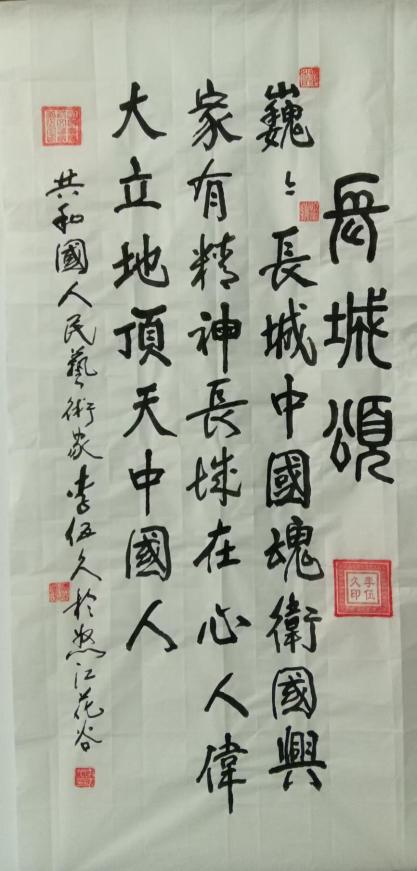 長城頌
李伍久印
巍〻長城中國魂衛國興
家有精神長城在心人偉
大立地頂天中國人
共和國人民藝術家李伍久於怒江花谷